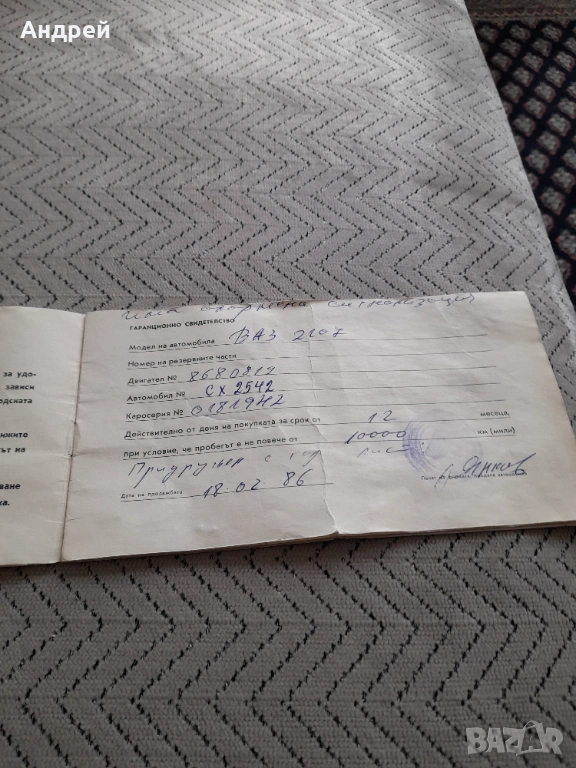 Андрей
има охранителна сигнализация
ГАРАНЦИОННО СВИДЕТЕЛСТВО
Модел на автомобила ВАЗ 2107
Номер на резервните части
Двигател № 8680812
Автомобил № СХ 2542
Каросерия № 0181942
Действително от деня на покупката за срок от 12 месеца,
при условие, че пробегът е не повече от 10000 км (мили)
Придружен с
лист
Дата на продажбата 18.02 86
Янков
за удо-
зависи
одската
ът на
ване
ка.
BAZAR